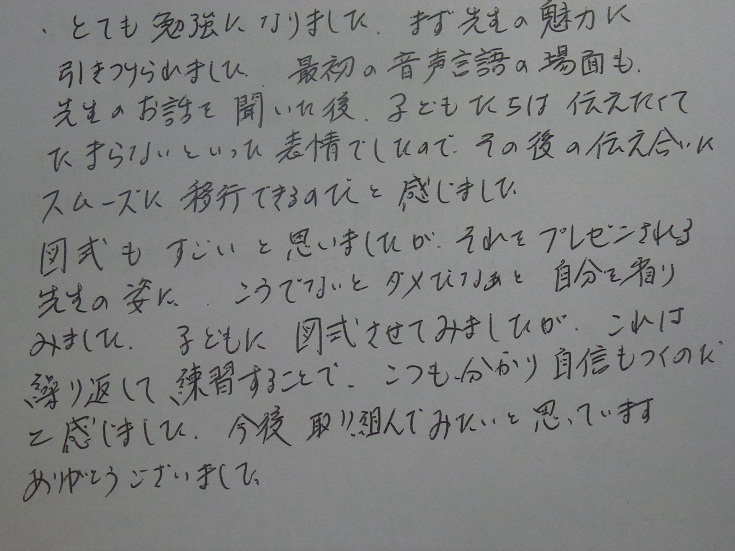 ・とても勉強になりました。まず先生の魅力に
引きつけられました。最初の音声言語の場面も、
先生のお話を聞いた後、子どもたちは伝えたくて
たまらないといった表情でしたので、その後の伝え合いに
スムーズに移行できるのだと感じました。
図式もすごいと思いましたが、それをプレゼンされる
先生の姿に、こうでないとダメだなぁと自分を省り
みました。子どもに図式させてみましたが、これは
繰り返して練習することで、こつも分かり自信もつくのだ
と感じました。今後取り組んでみたいと思っています
ありがとうございました。